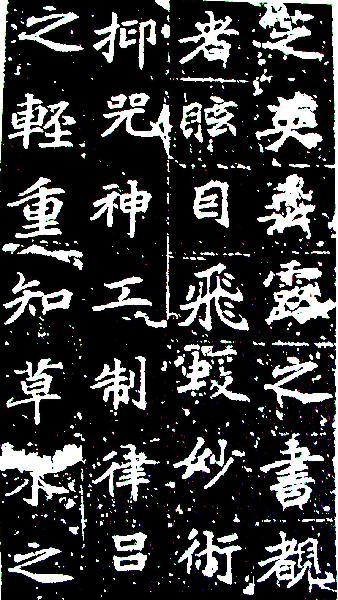 芝英垂露之書覩
者眩目飛妙術
抑咒神工制律吕
之輕重知草木之